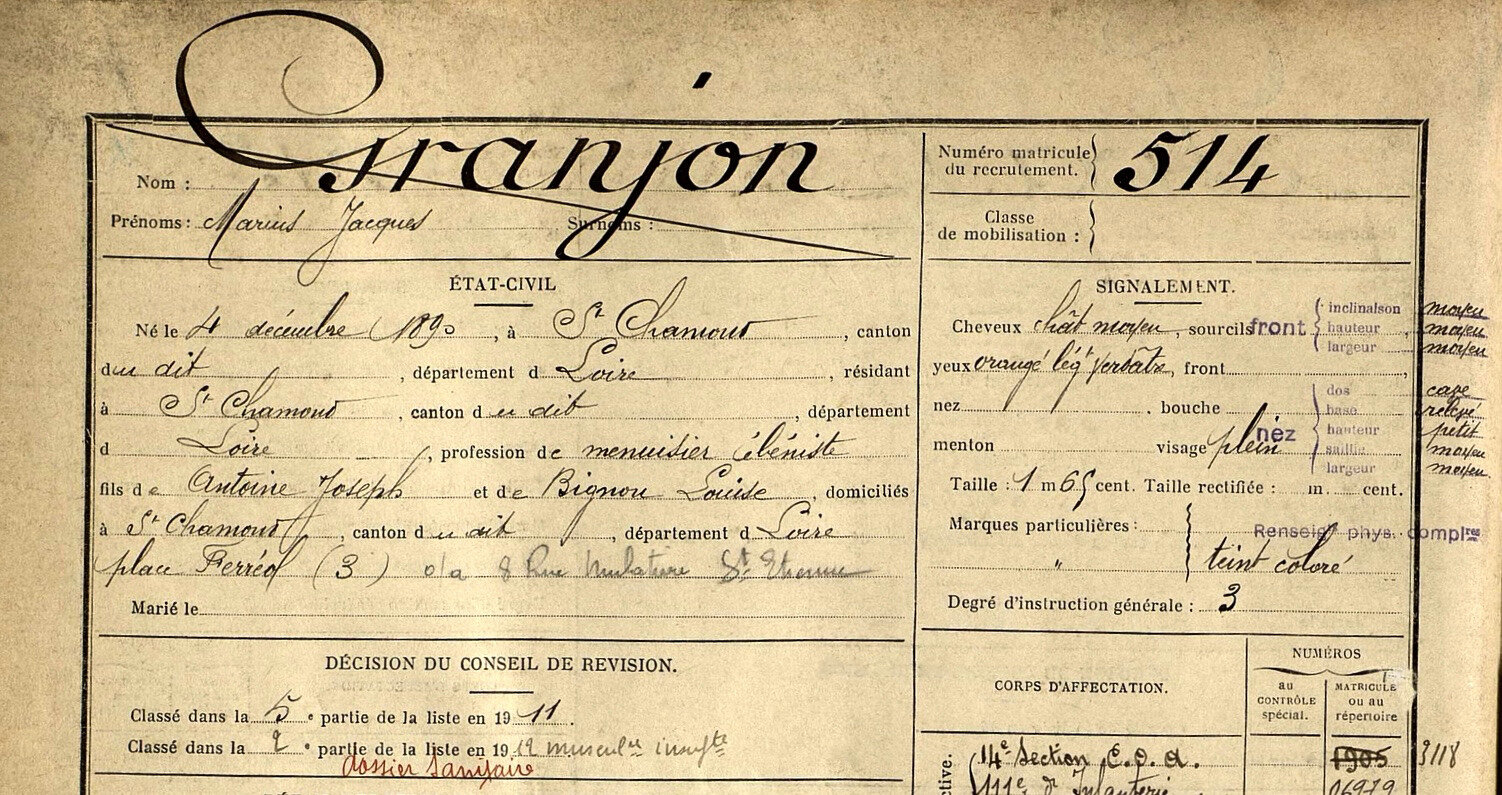 Granjon
Nom :
Prénoms : Marius Jacques Surnoms :
ÉTAT-CIVIL
Né le 4 décembre 1890, à St Chamond, canton
du dit, département d Loire, résidant
à St Chamond, canton du dit, département
d Loire, profession de menuisier ébéniste
fils de Antoine Joseph et de Bignon Louise, domiciliés
à St Chamond, canton du dit, département d Loire
place Ferréol (3) 8 Rue St Etienne
Marié le
DÉCISION DU CONSEIL DE REVISION.
Classé dans la 5e partie de la liste en 1911.
Classé dans la 2e partie de la liste en 1912 musculre insuffte
dossier sanitaire
Numéro matricule du recrutement. 514
Classe de mobilisation :
SIGNALEMENT.
Cheveux chât moyen, sourcils front inclinaison moyen
hauteur moyen
largeur moyen
yeux orangé légt verdâtre, front
nez . bouche
dos cave
base relevé
menton visage plein nez hauteur petit
saillie moyen
largeur moyen
Taille : 1 m 65 cent. Taille rectifiée : m. cent.
Marques particulières : Renseigts phys. complres
" teint coloré
Degré d'instruction générale : 3
CORPS D'AFFECTATION.
NUMÉROS
au CONTRÔLE spécial.
MATRICULE ou au répertoire
14e Section C.O.A. 1905 3118
111e d'Infanterie 06979
ctive.